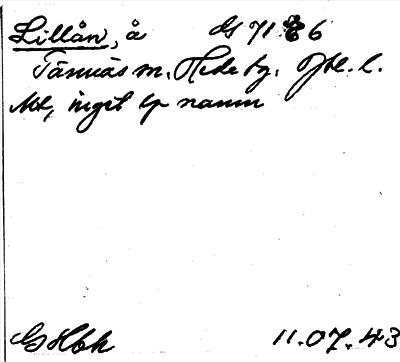 Lillån, å GS 71 E6
Tännäs sn. Hede tg. Jtl. l.
Ml, inget lp namn
GS Hbk 11.07.43